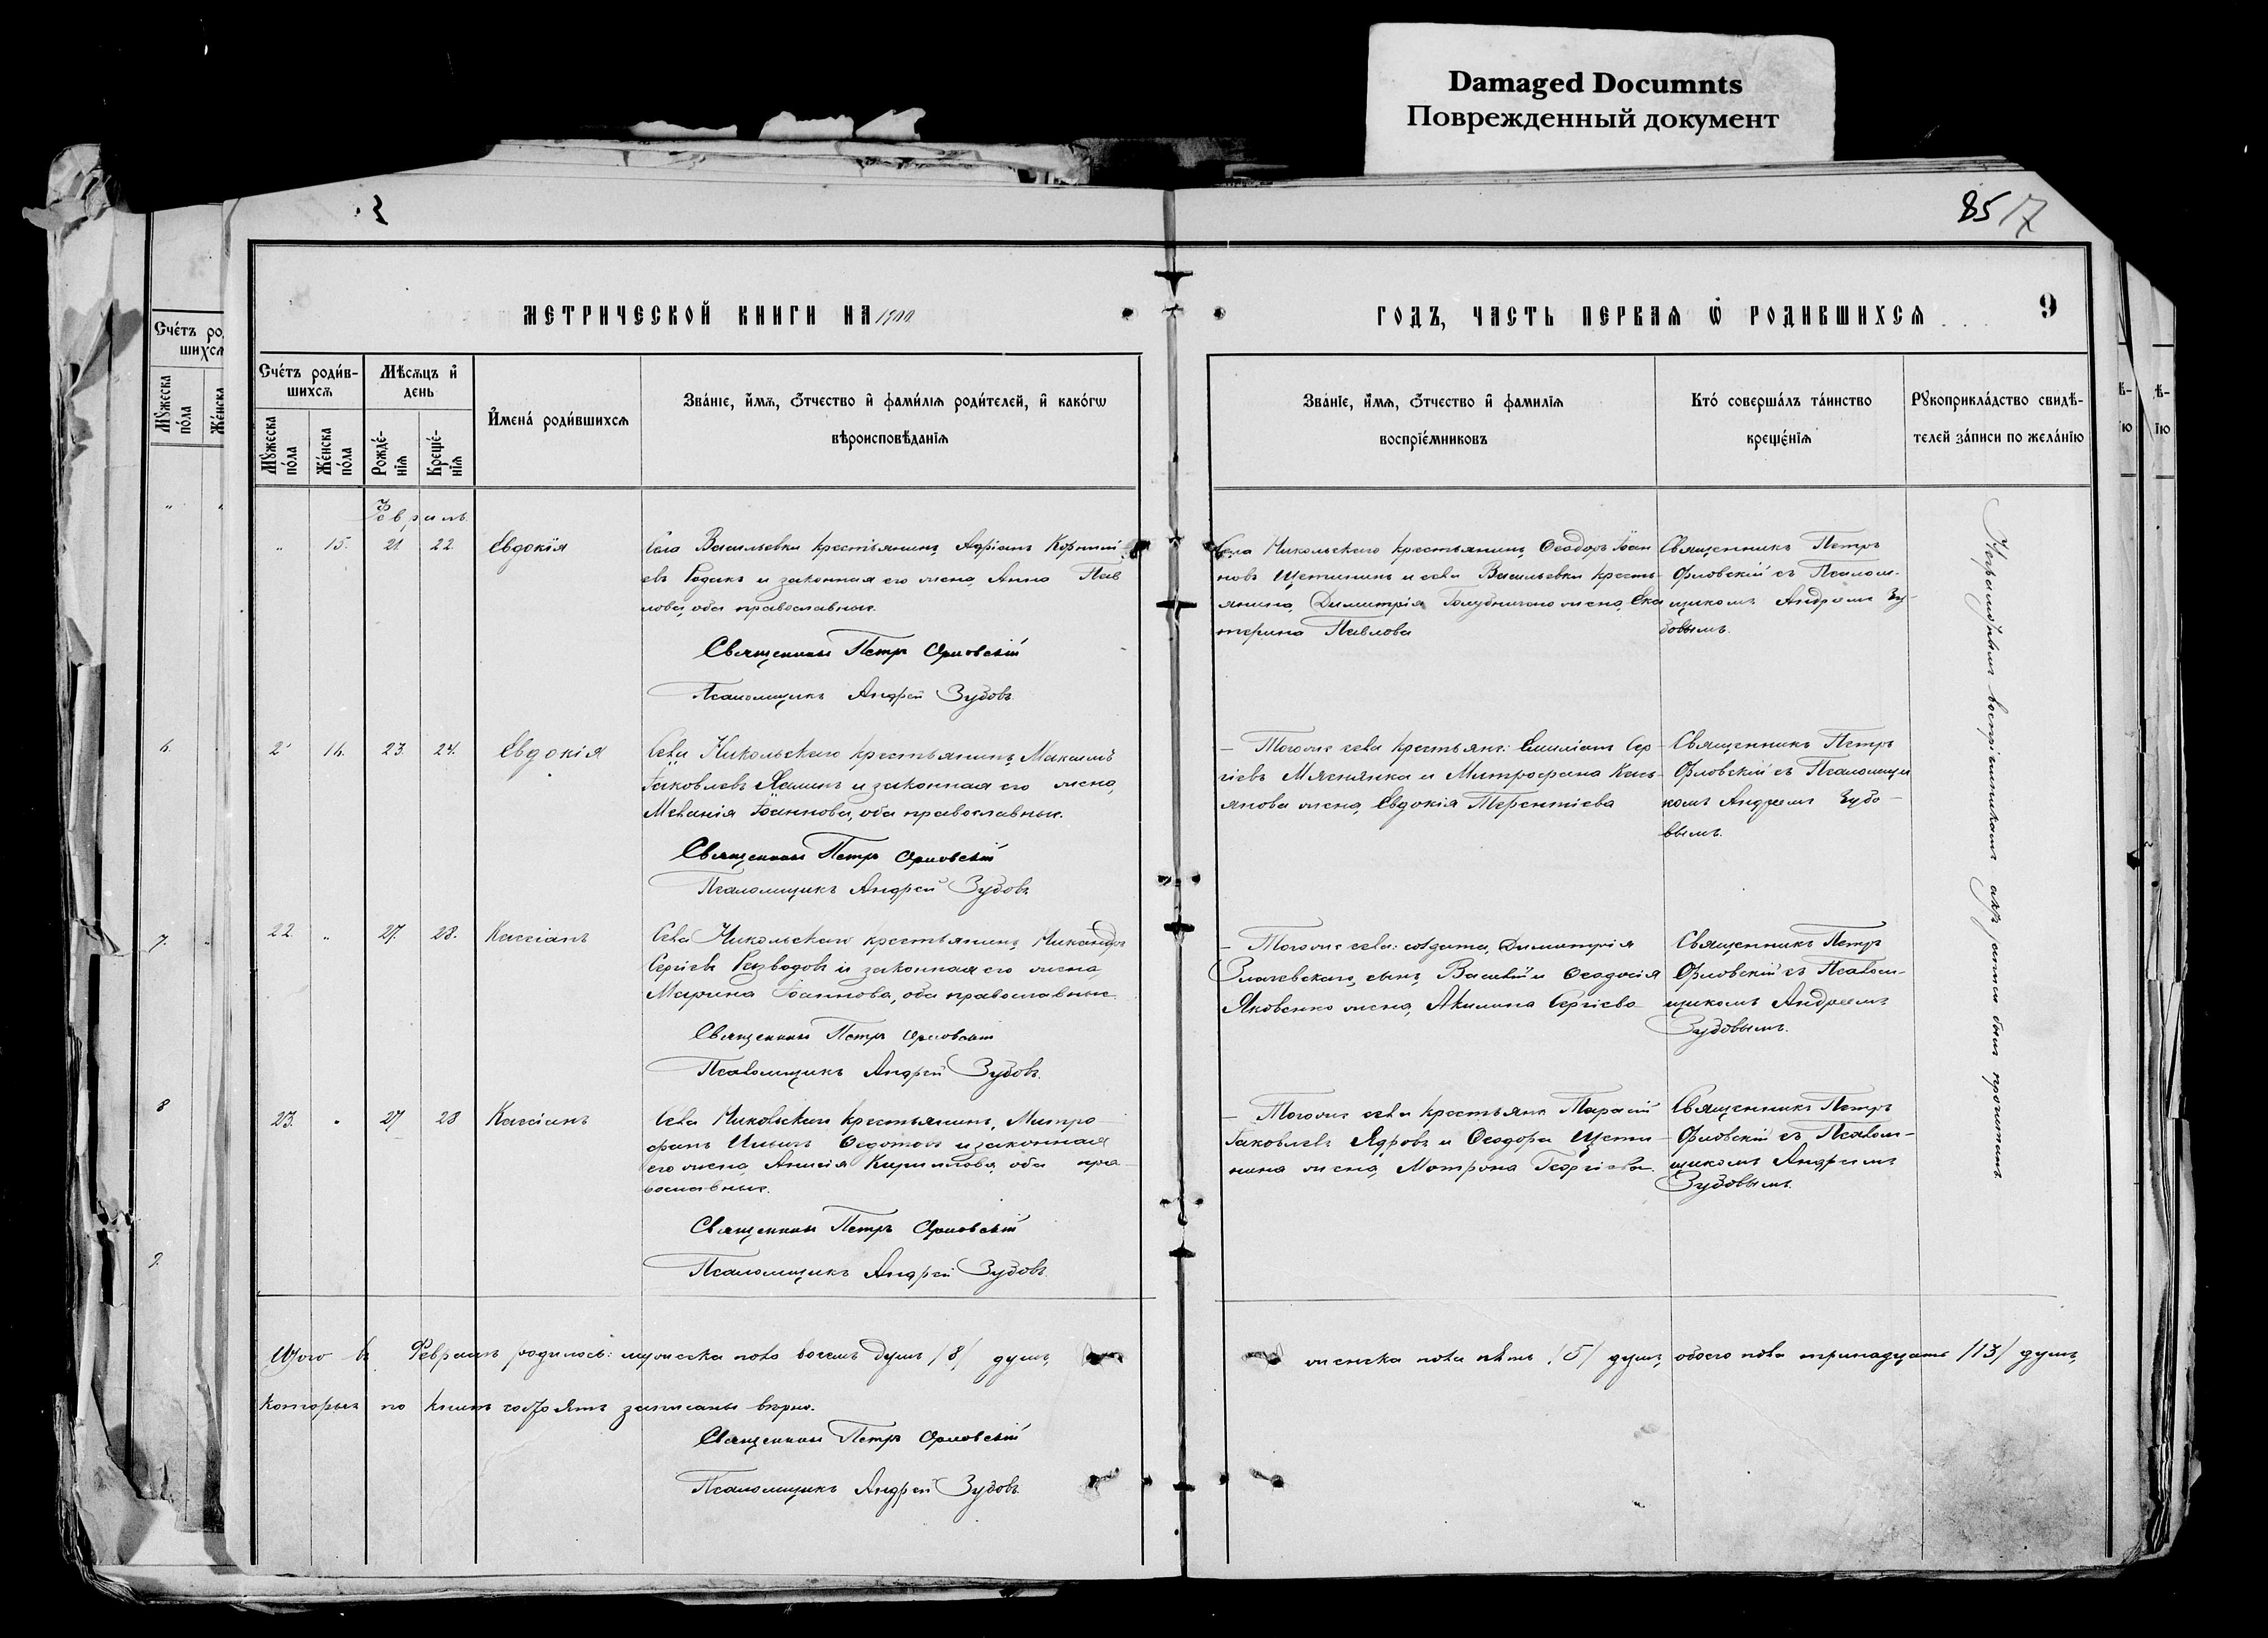 Damaged Documnts
Поврежденный документ
85/7
МЕТРИЧЕСКОЙ КНИГИ НА 1900
ГОДЪ, ЧАСТЬ ПЕРВАЯ Ѡ РОДИВШИХСЯ
9
Счétъ роди́в-
шихсѧ
Мꙋжеска по́ла
Же́нска по́ла
Мѣсѧцъ и҆ день
Рожде́-
нїѧ
Креще́-
нїѧ
И҆мена́ роди́вшихсѧ
Зва́нїе, и҆́мѧ, ѻ҆́тчество и҆ фами́лїѧ роди́телей, и҆ како́гѡ
вѣроисповѣ́данїѧ
Зва́нїе, и҆́мѧ, ѻ҆́тчество и҆ фамилїѧ
воспрїе́мниковъ
Кто́ соверша́лъ та́инство
креще́нїѧ
Рꙋкоприкла́дство свидѣ́-
телей за́писи по жела́нїю
Февраль
" 15. 21 22 Евдокія
Села Васильевки крестьянинъ Адріанъ Корнилі
евъ Родакъ и законная его жена Анна Пав
лова, оба православные.
Священникъ Петръ Орловскій
Псаломщикъ Андрей Зубовъ.
Села Никольскаго крестьянинъ Ѳеодоръ Іоан
новъ Щетининъ и села Васильевки кресть-
янина, Димитрія Голубничаго жена, Ека
терина Павлова
Священникъ Петръ
Орловскій съ Псалом-
щикомъ Андреемъ Зу-
бовымъ.
2' 16. 23. 24. Евдокія
Села Никольскаго крестьянинъ, Максимъ
Іаковлевъ и законная его жена,
Меланія Іоаннова, оба православные.
Священникъ Петръ Орловскій
Псаломщикъ Андрей Зубовъ
– Того же села крестьяне: Емиліанъ Сер
гіевъ Мяснянка и Митрофана Кась-
янова жена, Евдокія Терентіева
Священникъ Петръ
Орловскій съ Псаломщи
комъ Андреемъ Зубо-
вымъ.
22. " 27. 28. Кассіанъ
Села Никольскаго крестьянинъ, Никандръ
Сергіевъ Разводовъ и законная его жена,
Марина Іоаннова, оба православные.
Священникъ Петръ Орловскій
Псаломщикъ Андрей Зубовъ.
– Того же села: солдата, Димитрія
Злачевскаго, сынъ, Василій и Ѳеодосія
Яковенко жена, Акилина Сергіева
Священникъ Петръ
Орловскій съ Псалом-
щикомъ Андреемъ
Зубовымъ.
23. " 27 28 Кассіанъ
Села Никольскаго крестьянинъ, Митро
фанъ Ильинъ Ѳедотовъ и законная
его жена, Анисія Кириллова, оба пра-
вославные.
Священникъ Петръ Орловскій
Псаломщикъ Андрей Зубовъ
– Того же села крестьяне Тарасій
Іаковлевъ Ядровъ и Ѳеодора Щети-
нина жена, Матрона Георгіева.
Священникъ Петръ
Орловскій съ Псалом-
щикомъ Андреемъ
Зубовымъ.
воспріемникамъ актъ записи былъ прочитанъ
Итого въ Февралѣ родилось: мужеска пола восемь душъ /8/ душъ, женска пола пять /5/ душъ, обоего пола тринадцать /13/ душъ,
которыя по книгѣ записаны вѣрно.
Священникъ Петръ Орловскій
Псаломщикъ Андрей Зубовъ.